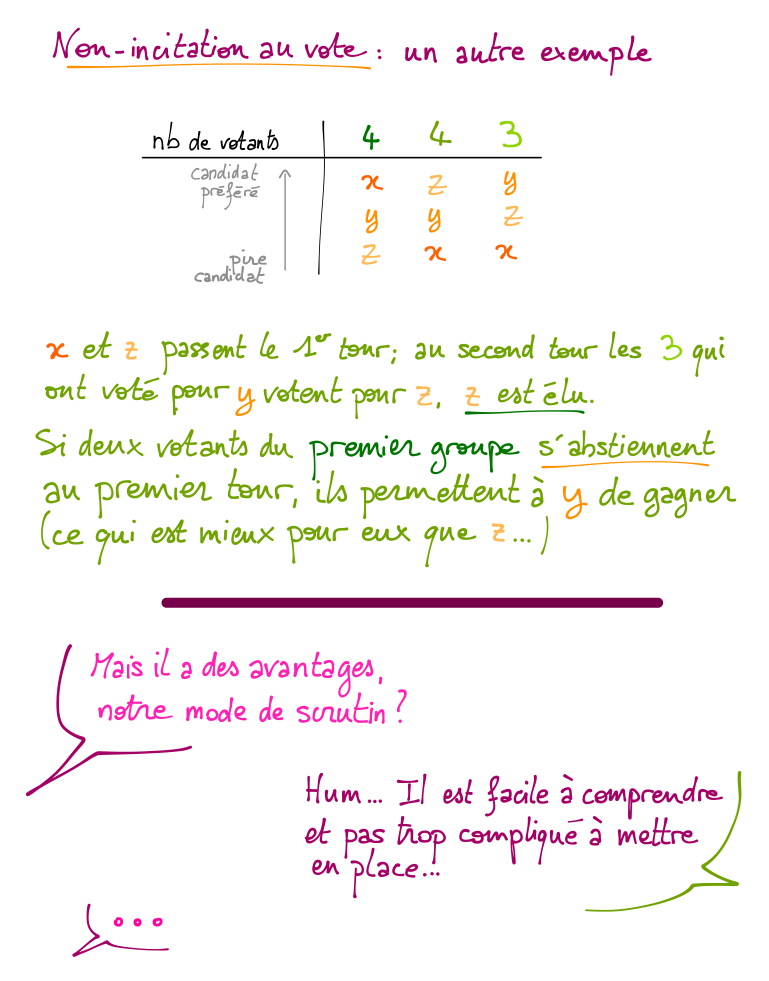 Non-incitation au vote : un autre exemple
nb de votants 4 4 3
candidat préféré x z y
y y z
pire candidat z x x
x et z passent le 1er tour; au second tour les 3 qui
ont voté pour y votent pour z, z est élu.
Si deux votants du premier groupe s'abstiennent
au premier tour, ils permettent à y de gagner
(ce qui est mieux pour eux que z...)
Mais il a des avantages,
notre mode de scrutin ?
Hum... Il est facile à comprendre
et pas trop compliqué à mettre
en place...
...